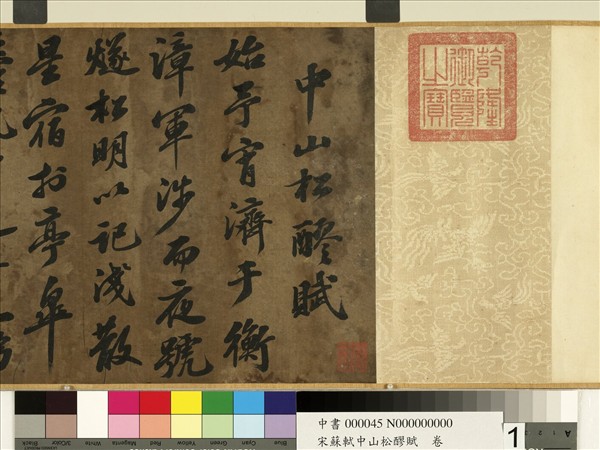 乾隆御覽之寶
中山松醪賦
始予宵濟于衡
漳軍涉而夜號
燧松明以記淺散
星宿於亭皐
Blue Cyan Green Yellow Red Magenta White 3/Color Black
中書 000045 N000000000
宋蘇軾中山松醪賦 卷
1
A 1 2